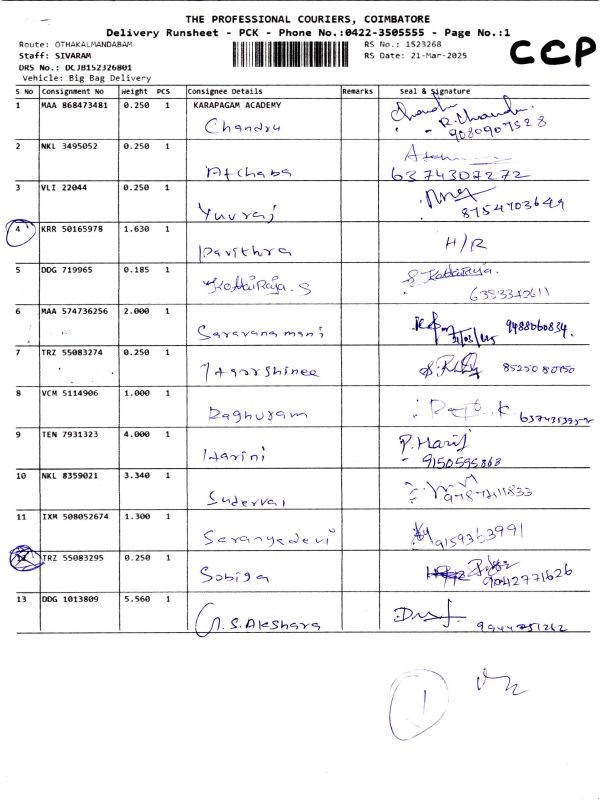 THE PROFESSIONAL COURIERS, COIMBATORE
Delivery Runsheet - PCK - Phone No.:0422-3505555 - Page No.:1
Route: OTHAKALMANDABAM
RS No.: 1523268
Staff: SIVARAM
RS Date: 21-Mar-2025
CCP
DRS No.: DCJB152326801
Vehicle: Big Bag Delivery
S No Consignment No Weight PCS Consignee Details Remarks Seal & Signature
1 MAA 868473481 0.250 1 KARAPAGAM ACADEMY
Chandru R.Chandru
9080907528
2 NKL 3495052 0.250 1
Atchaba 6374307272
3 VLI 22044 0.250 1
Yuvraj 8754703649
4 KRR 50165978 1.630 1
Pavithra H/R
5 DDG 719965 0.185 1
KottaiRaja. S S KottaiRaja.
6383342611
6 MAA 574736256 2.000 1
Saravanamani 21/03/2025 9488060834.
7 TRZ 55083274 0.250 1
Haarshinee 8525080750
8 VCM 5114906 1.000 1
Raghuram
9 TEN 7931323 4.000 1
Harini P. Harif
9150595868
10 NKL 8359021 3.340 1
11 IXM 508052674 1.300 1
Saranyadevi 9159363991
12 TRZ 55083295 0.250 1
Sobiga 9042771626
13 DDG 1013809 5.560 1
G.S. Akshara
1